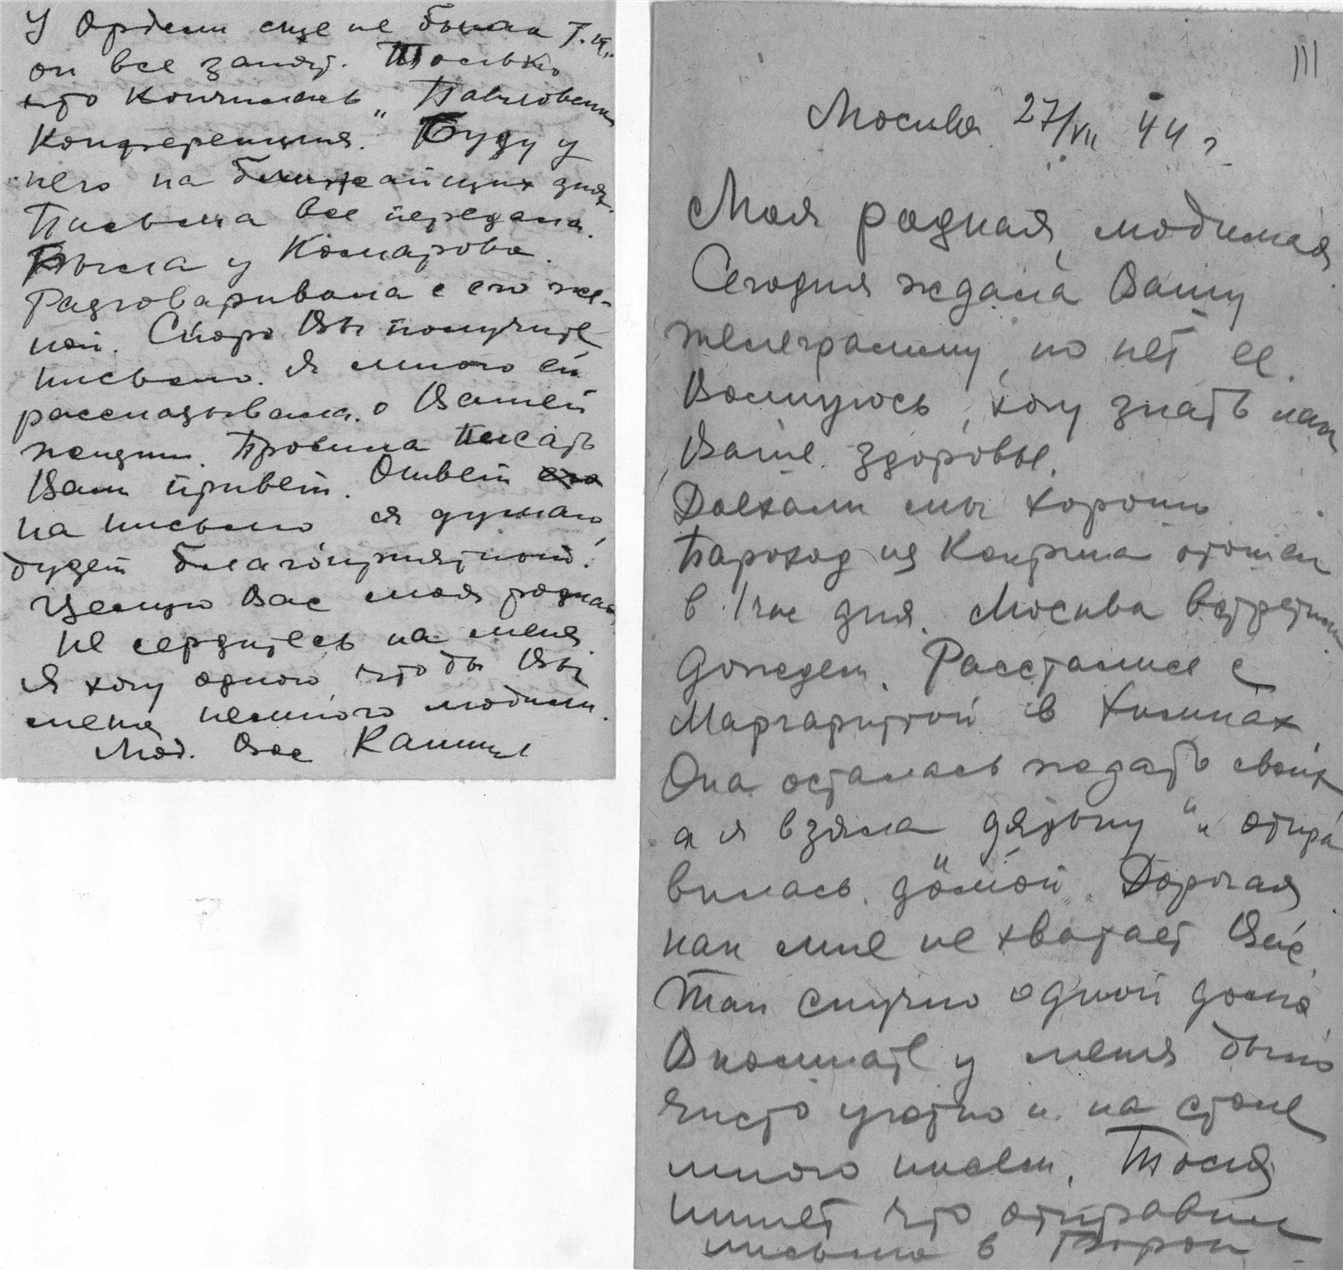 У Орбели еще не была т.к.
он все занят. Только
что кончилась „Павловская
Конференция." Буду у
него на ближайших днях.
Письма все передала.
Была у Комарова.
Разговаривала с его же-
ной. Скоро Вы получите
письмо. Я много ей
рассказывала о Вашей
жизни. Просила писать
Вам привет. Ответ
на письмо я думаю
будет благоприятной.
Целую Вас моя родная
Не сердитесь на меня
Я хочу одного, чтобы Вы
меня немного любили.
Люб. Вас
111
Москва 27/VII 44 г.
Моя родная, любимая
Сегодня ждала Вашу
телеграмму, но нет ее.
Волнуюсь, хочу знать как
Ваше здоровье.
Доехали мы хорошо
Пароход из отошел
в 1 час дня. Москва встретила
дождем. Рассталися с
Маргаритой в Химках
Она осталась ждать своих
а я взяла и отпра
вилась домой. Дорогая
как мне не хватает Вас.
Так скучно одной дома
В комнате у меня было
чисто уютно и на столе
много писем. Тося
пишет что отправила
письмо в